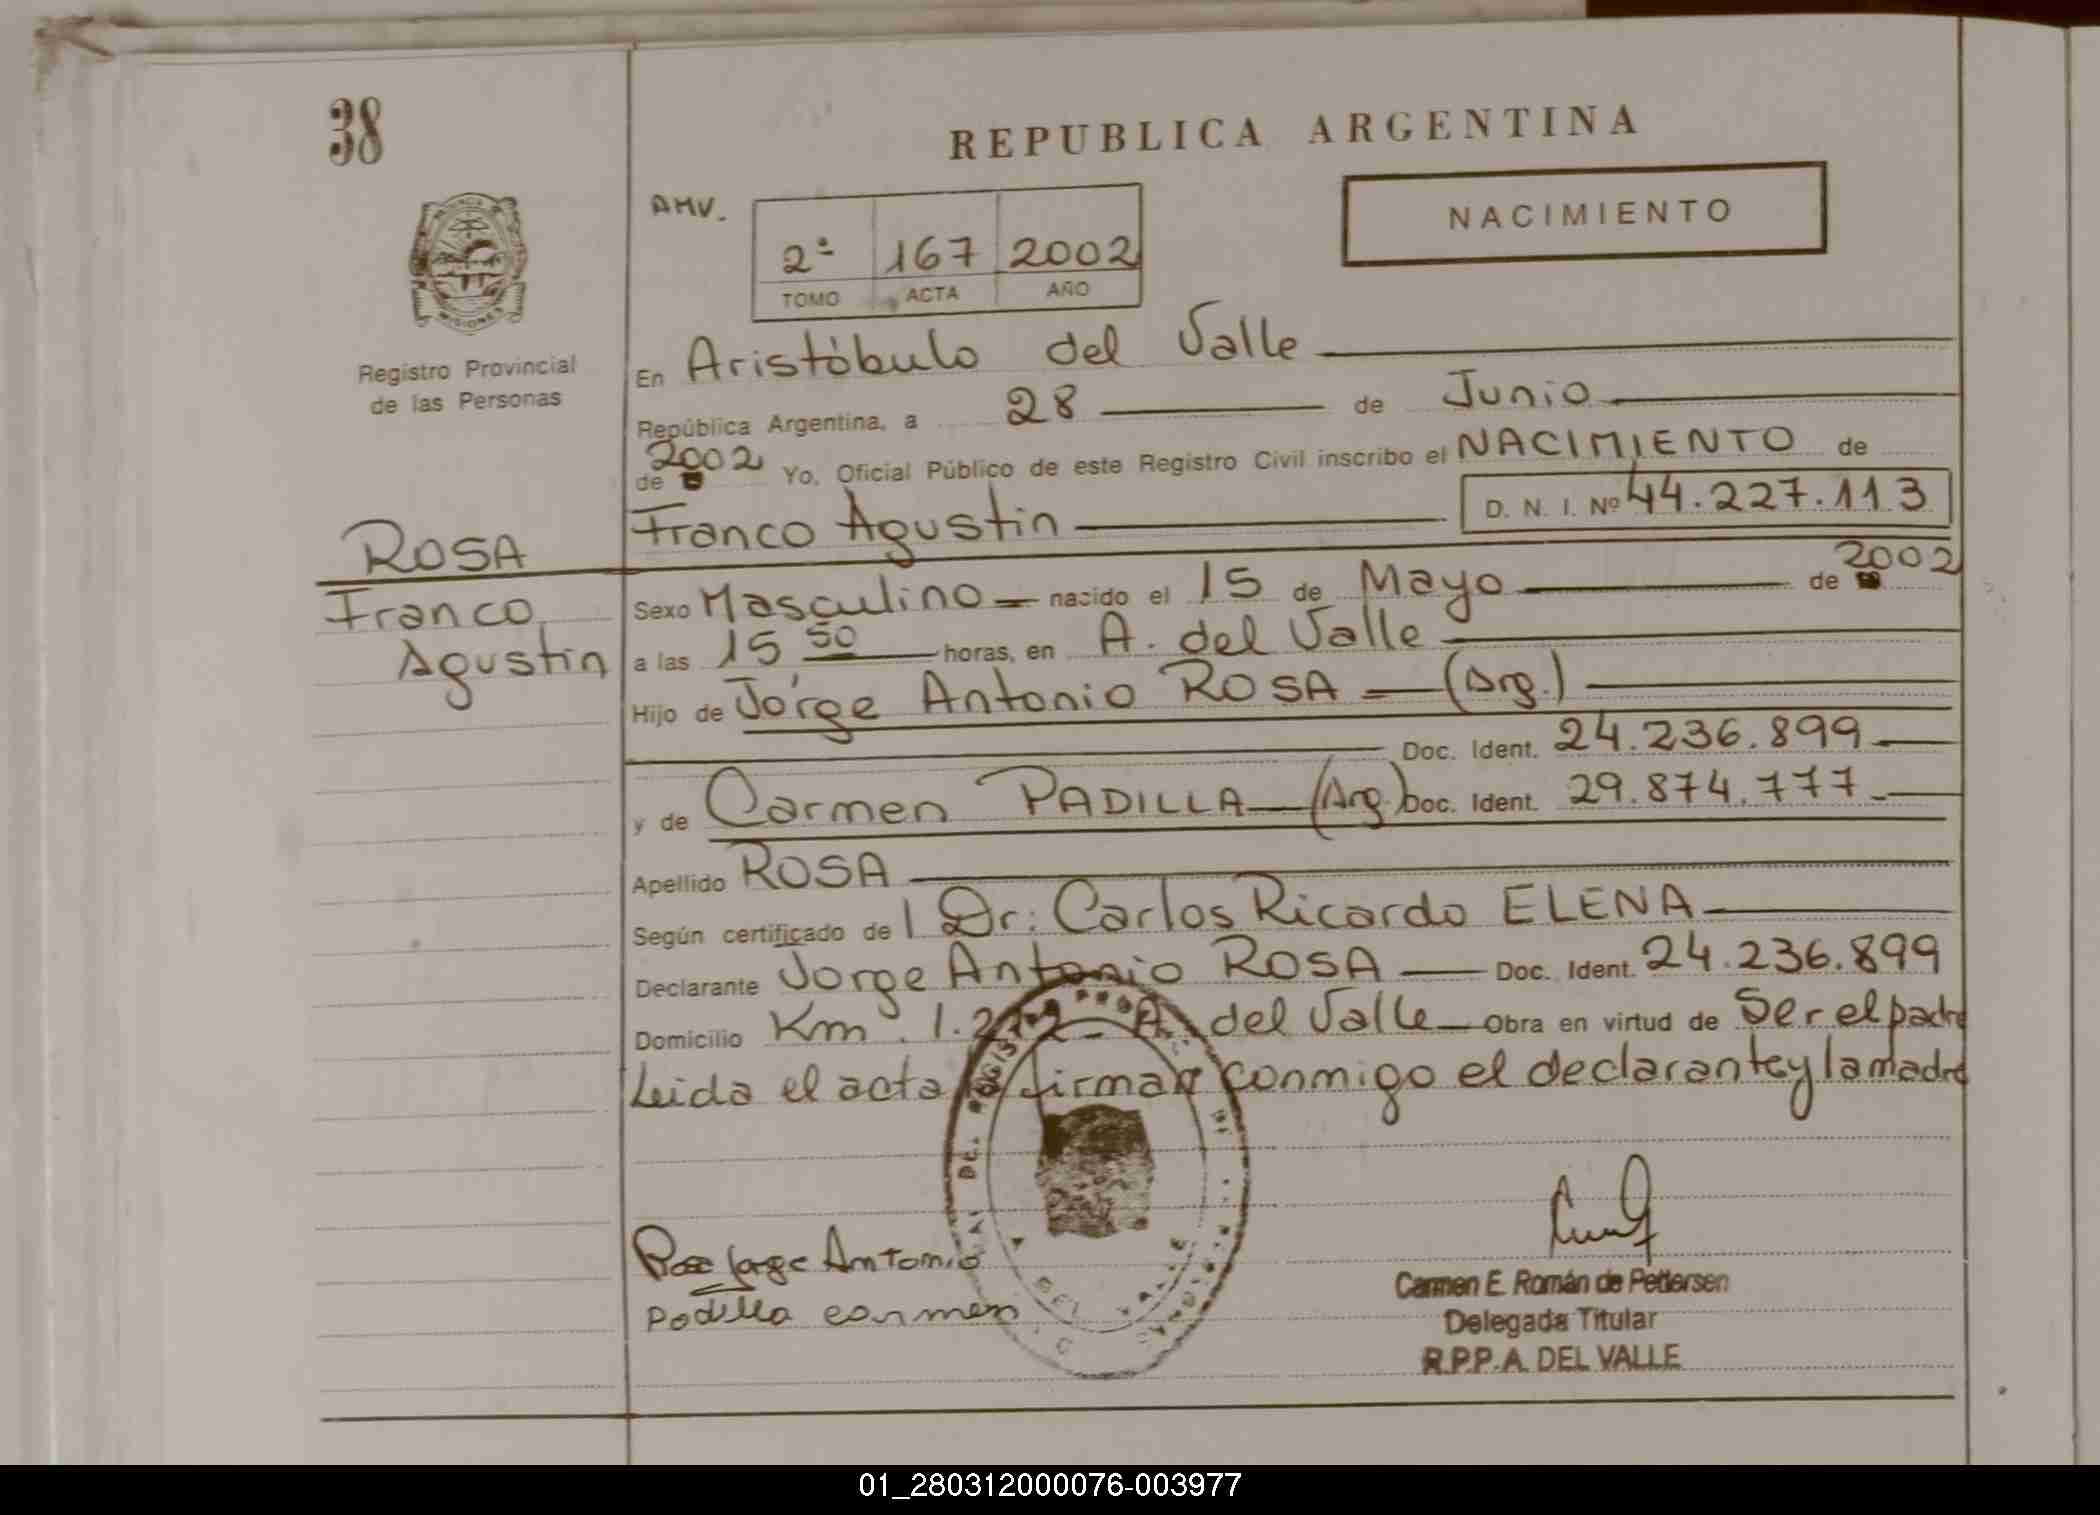 38
REPUBLICA ARGENTINA
NACIMIENTO
AMV.
2ª 167 2002
TOMO ACTA AÑO
MISIONES
Registro Provincial
de las Personas
En Aristóbulo del Valle
República Argentina, a 28 de Junio
de 2002 Yo, Oficial Público de este Registro Civil inscribo el NACIMIENTO de
Franco Agustin D. N. I. Nº 44.227.113
ROSA
Franco
Agustin
Sexo Masculino nacido el 15 de Mayo de 2002
a las 15 50 horas, en A. del Valle
Hijo de Jorge Antonio ROSA (Arg.)
Doc. Ident. 24.236.899
y de Carmen PADILLA (Arg.) Doc. Ident. 29.874.777
Apellido ROSA
Según certificado de l Dr: Carlos Ricardo ELENA
Declarante Jorge Antonio ROSA Doc. Ident. 24.236.899
Domicilio Km. 1.272 - A. del Valle Obra en virtud de Ser el padre
Leida el acta firman conmigo el declarante y la madre
Jorge Antonio
Padilla carmen
Carmen E. Román de Pettersen
Delegada Titular
R.P.P.A. DEL VALLE
01_280312000076-003977